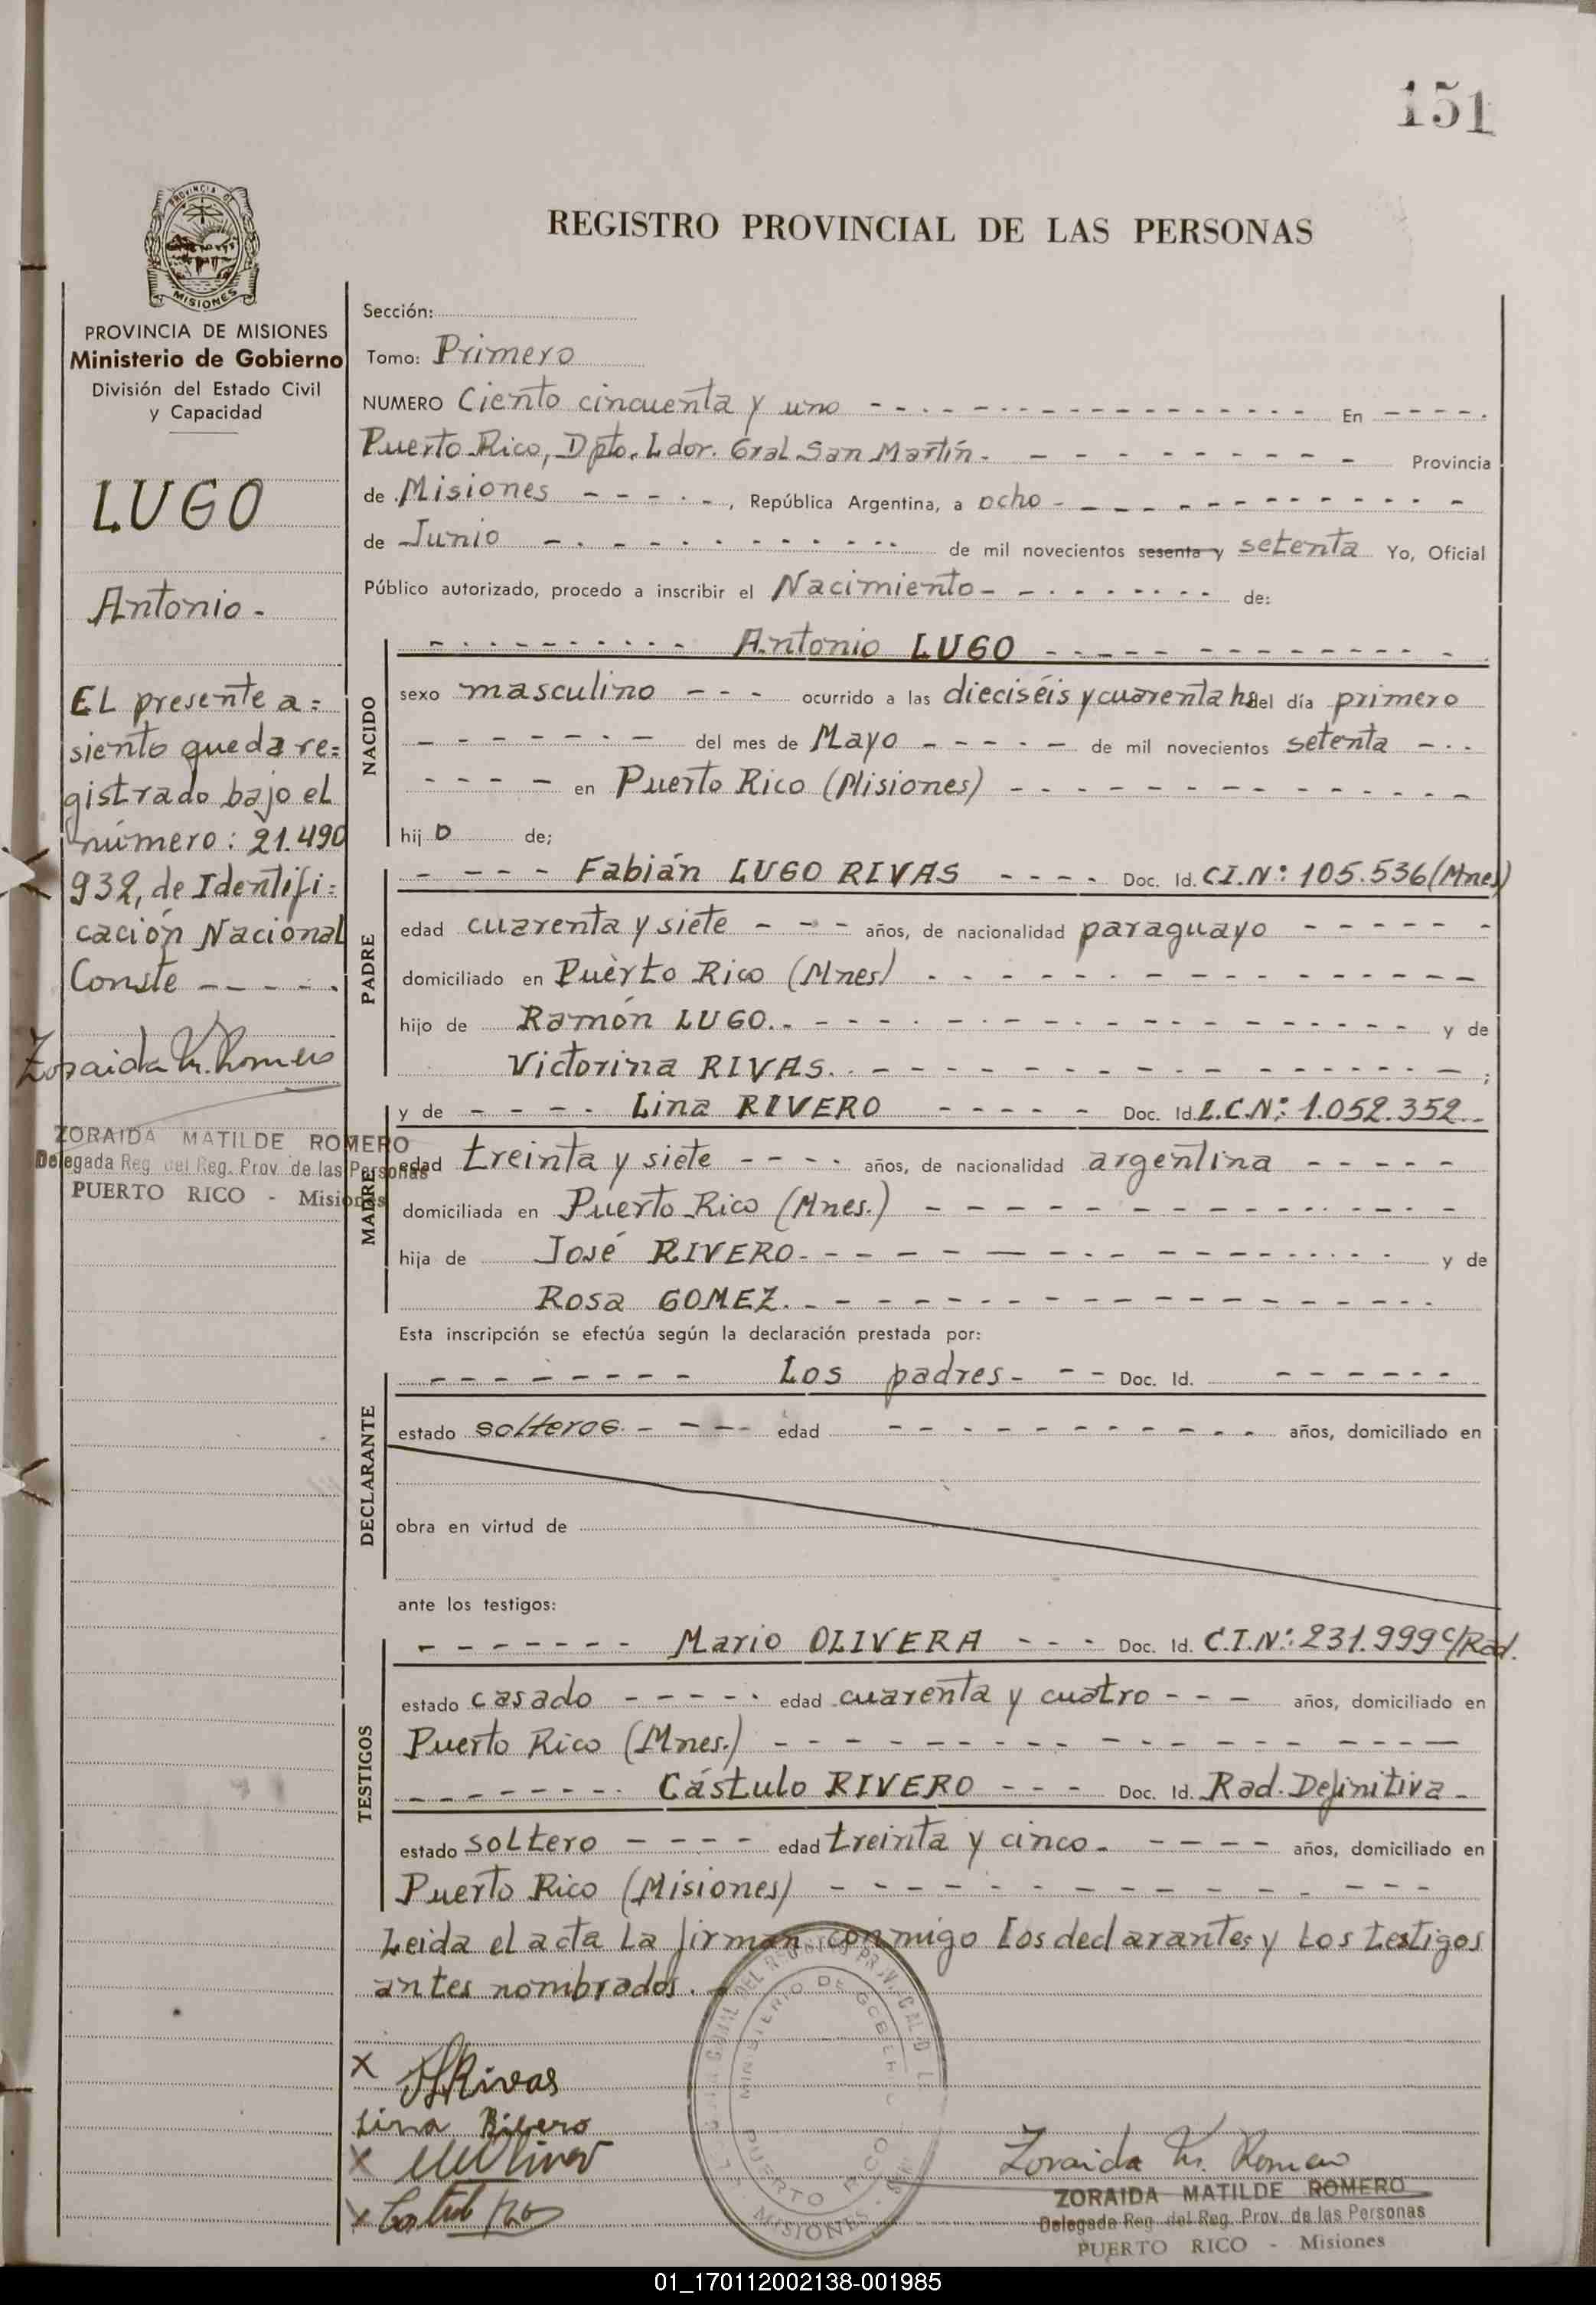 151
PROVINCIA DE
MISIONES
PROVINCIA DE MISIONES
Ministerio de Gobierno
División del Estado Civil
y Capacidad
LUGO
Antonio -
El presente a=
siento queda re=
gistrado bajo el
número: 21.490
932, de Identifi=
cación Nacional
Conste - - - - -
Zoraida M. Romero
ZORAIDA MATILDE ROMERO
Delegada Reg. del Reg. Prov. de las Personas
PUERTO RICO - Misiones
REGISTRO PROVINCIAL DE LAS PERSONAS
Sección:
Tomo: Primero
NUMERO Ciento cincuenta y uno - - - - En - - - -
Puerto Rico, Dpto. Ldor. Gral San Martín. - - - - Provincia
de Misiones - - - - -, República Argentina, a ocho - - - -
de Junio - - - - de mil novecientos sesenta y setenta Yo, Oficial
Público autorizado, procedo a inscribir el Nacimiento - - - - de:
NACIDO
- - - - Antonio LUGO - - - -
sexo masculino - - - ocurrido a las dieciséis y cuarenta hs del día primero
- - - - del mes de Mayo - - - - de mil novecientos setenta - - -
- - - - en Puerto Rico (Misiones) - - - -
hijo de;
PADRE
- - - - Fabián LUGO RIVAS - - - - Doc. Id. C.I.Nº: 105.536 (Mnes)
edad cuarenta y siete - - - años, de nacionalidad paraguayo - - - -
domiciliado en Puerto Rico (Mnes) - - - -
hijo de Ramón LUGO. - - - - y de
Victorina RIVAS. - - - - ;
MADRE
y de - - - - Lina RIVERO - - - - Doc. Id. L.C.Nº: 1.052.352 - -
edad treinta y siete - - - - años, de nacionalidad argentina - - - -
domiciliada en Puerto Rico (Mnes.) - - - -
hija de José RIVERO - - - - y de
Rosa GOMEZ. - - - -
Esta inscripción se efectúa según la declaración prestada por:
DECLARANTE
- - - - Los padres - - - Doc. Id. - - - -
estado solteros. - - - edad - - - - años, domiciliado en
obra en virtud de
ante los testigos:
TESTIGOS
- - - - Mario OLIVERA - - - Doc. Id. C.I.Nº: 231.999 c/Rad.
estado casado - - - - edad cuarenta y cuatro - - - años, domiciliado en
Puerto Rico (Mnes.) - - - -
- - - - Cástulo RIVERO - - - Doc. Id. Rad. Definitiva -
estado soltero - - - - edad treinta y cinco - - - - años, domiciliado en
Puerto Rico (Misiones) - - - -
Leida el acta la firman conmigo los declarantes y los testigos
antes nombrados. -
MINISTERIO DE GOBIERNO
PUERTO RICO
MISIONES
Rivas
Lina Rivero
Zoraida M. Romero
ZORAIDA MATILDE ROMERO
Delegada Reg. del Reg. Prov. de las Personas
PUERTO RICO - Misiones
01_170112002138-001985